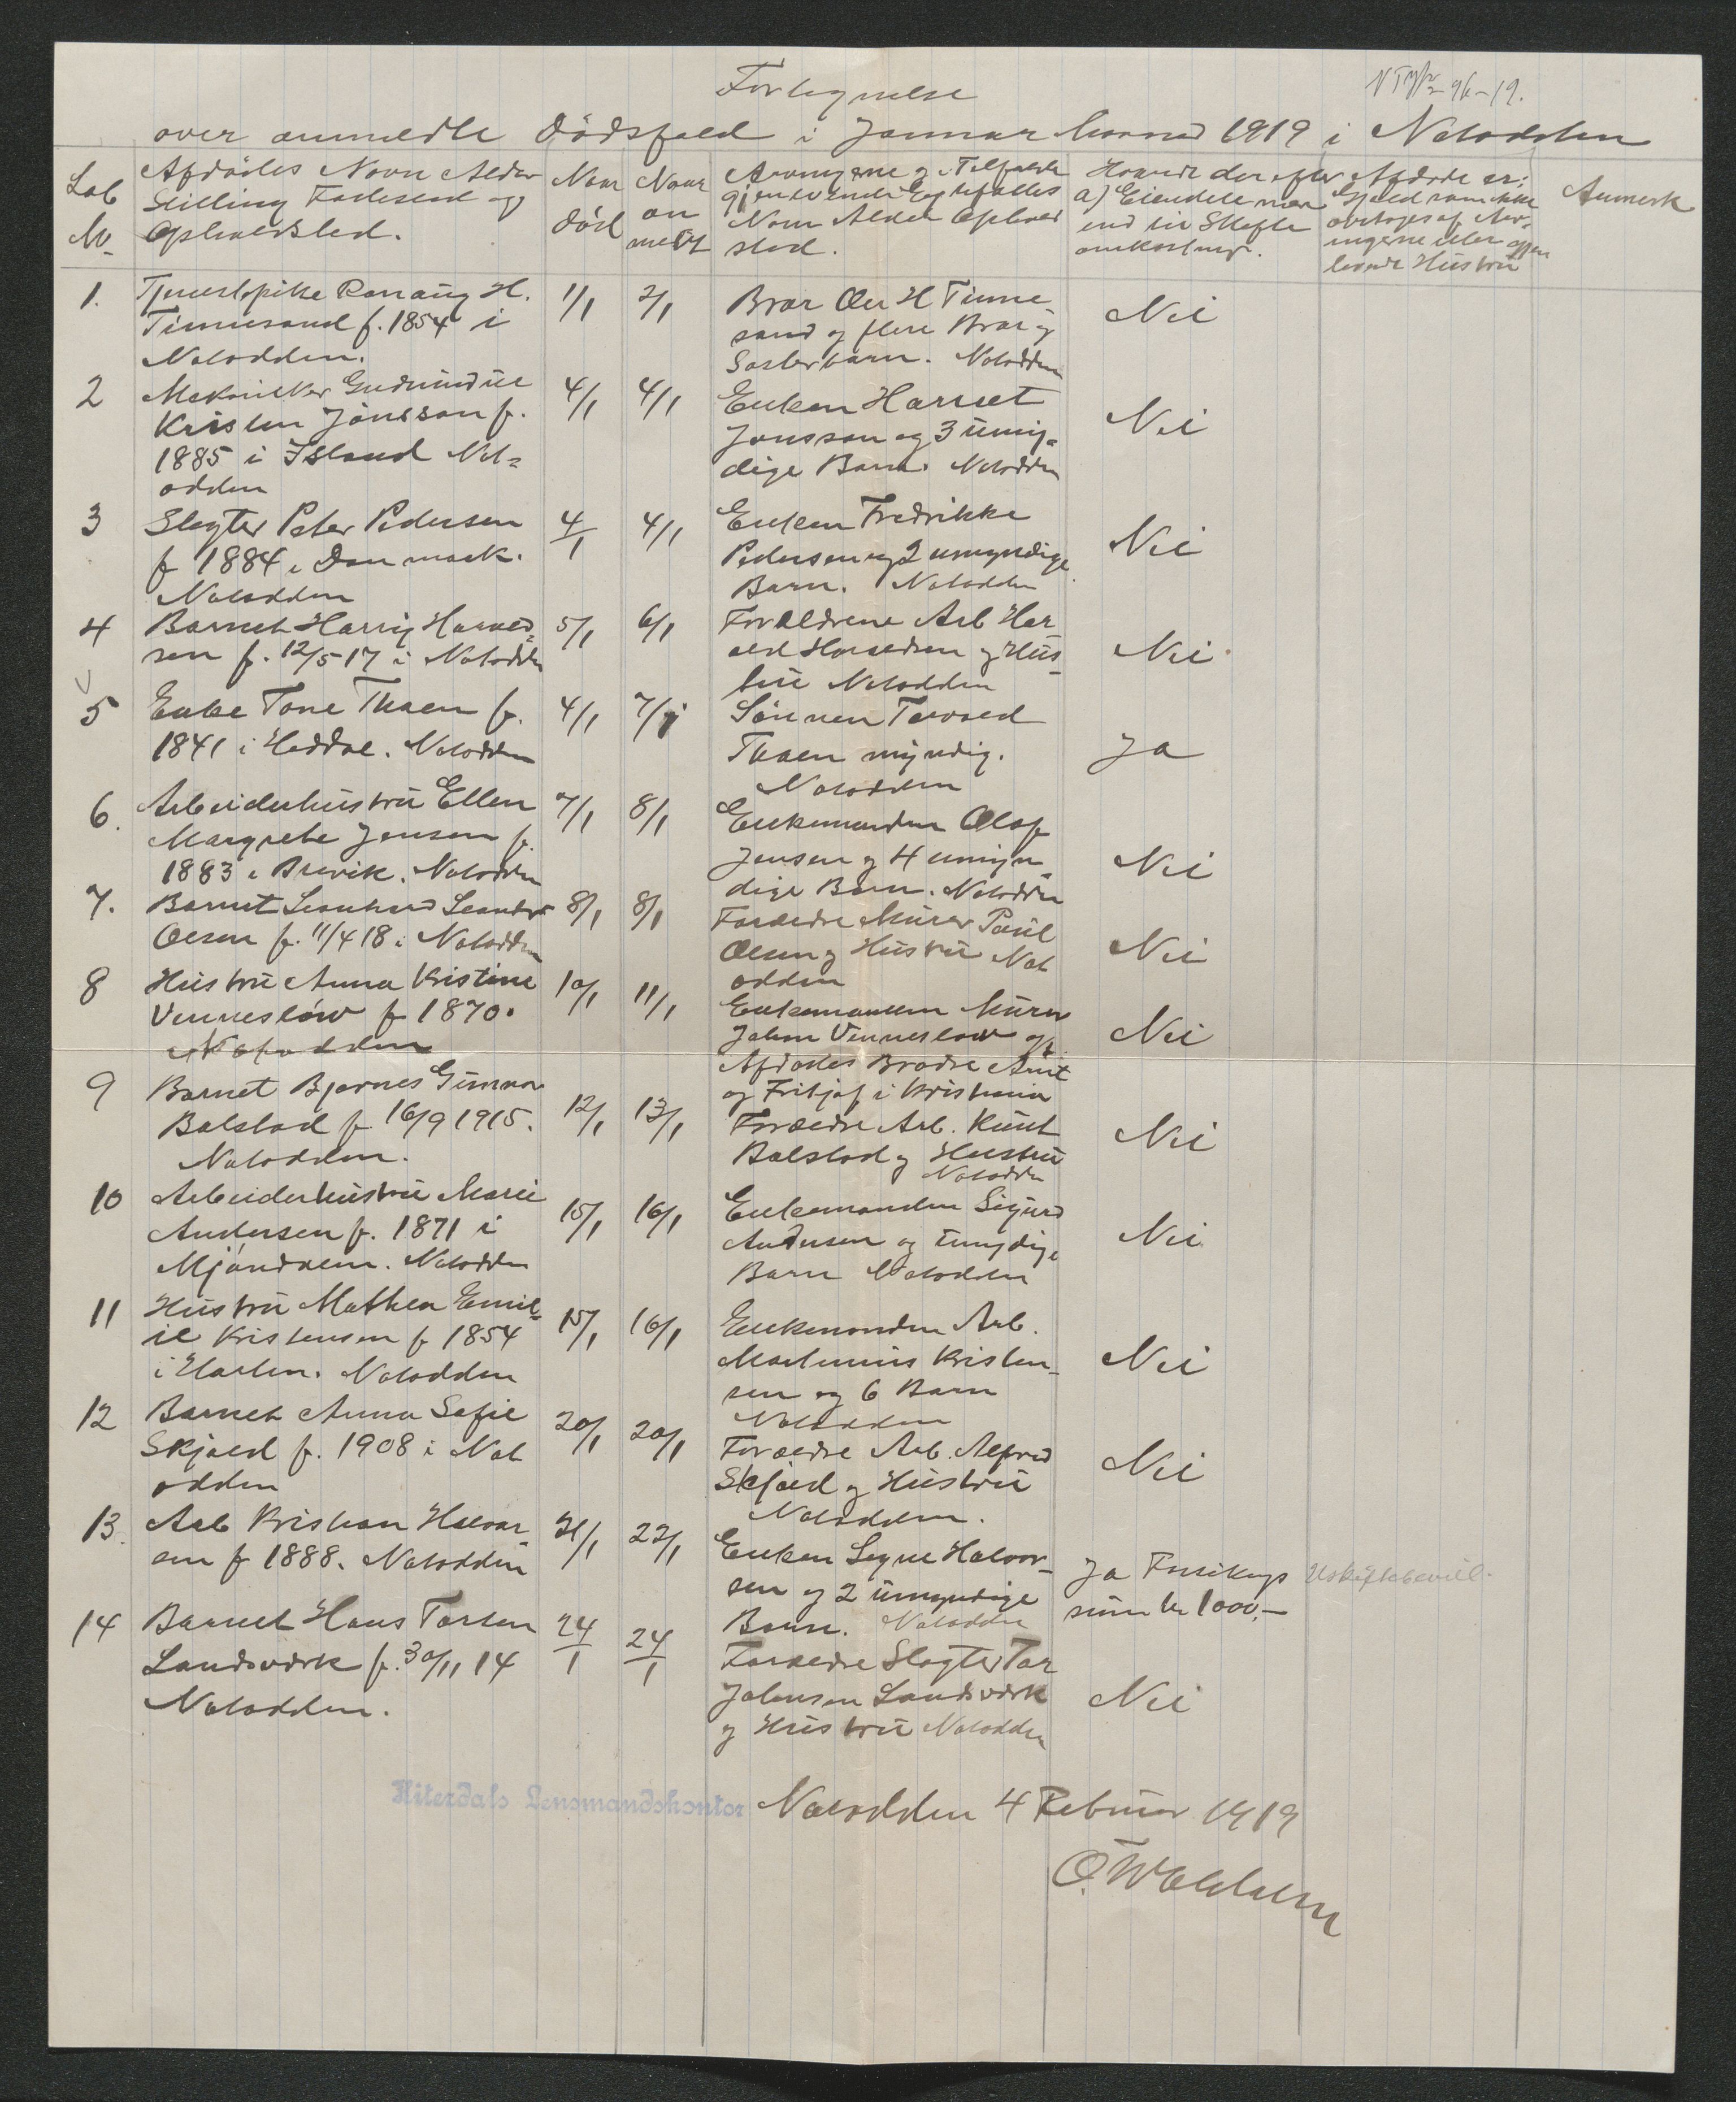 Fortegnelse
over anmeldte Dödsfald i Januar Maaned 1919 i Notodden
Løb
No
Afdødes Navn Alder
Stilling Fødested og
Opholdsted.
Naar
död
Naar
an
meldt
Arvingerne og i Tilfælde
gjenlevende Egtefælles
Navn Alder Ophold
sted.
Hvorvidt der efter Afdøde er:
a) Eiendele mer
end til Skifte
omkostninger.
Gjæld som ikke
overtages af Arv-
ingerne eller gjen
levende Hustru
Anmerk
1. Tjenestepike Ranaug H.
Tinnesand f. 1854 i
Notodden.
1/1 2/1
Bror Ole H Tinne
sand og flere Bror og
Søsterbarn. Notodden
Nei
2 Mekaniker Gudmundur
Kristen Jónsson f.
1885 i Island Not-
odden
4/1 4/1
Enken Harriet
Jonsson og 3 umyn-
dige Barn. Notodden
Nei
3 Slagter Peter Pedersen
f 1884 i Danmark.
Notodden
4/1 4/1
Enken Fredrikke
Pedersen og 2 umyndige
Barn. Notodden
Nei
4 Barnet Harry Harald-
sen f. 12/5-17 i Notodden
5/1 6/1
Forældrene Arb Har
ald Haraldsen og Hus-
tru Notodden
Nei.
5 Enke Tone Thoen f.
1841 i Heddal. Notodden
4/1 7/1
Sönnen Torvald
Thoen myndig.
Notodden
Ja
6. Arbeiderhustru Ellen
Margrete Jensen f.
1883 i Brevik. Notodden
7/1 8/1
Enkemanden Olaf
Jensen og 4 umyn
dige Barn. Notodden
Nei
7. Barnet Leonhard Leander
Olsen f. 11/4 18 i Notodden
8/1 8/1
Forældre Murer Paul
Olsen og Hustru Not
odden
Nei
8 Hustru Anna Kristine
Venneslöw f 1870.
Notodden
10/1 11/1
Enkemanden Murer
Johan Venneslow og
Afdödes Brødre Anit
og Fritjof i Kristiania
Nei
9 Barnet Bjarnes Gunnar
Bolstad f. 16/9 1915.
Notodden.
12/1 13/1
Forældre Arb. Knut
Bolstad og Hustru
Notodden
Nei
10 Arbeiderhustru Marie
Andersen f. 1871 i
Mjöndalen. Notodden
15/1 16/1
Enkemanden Sigurd
Andersen og umyndige
Barn Notodden
Nei
11 Hustru Mathea Emil-
ie Kristensen f 1854
i Horten. Notodden
15/1 16/1
Enkemanden Arb.
Martinius Kristen-
sen og 6 Barn
Notodden
Nei
12 Barnet Anna Sofie
Skjold f. 1908 i Not
odden
20/1 20/1
Forældre Arb. Alfred
Skjold og Hustru
Notodden.
Nei
13. Arb Kristian Halvor
sen f 1888. Notodden
21/1 22/1
Enken Signe Halvor-
sen og 2 umyndige
Barn. Notodden
Ja Forsikrings
sum kr 1000.-
Uskiftebevill.
14 Barnet Hans Torsten
Landsverk f. 30/11 14
Notodden.
24/1 24/1
Forældre Slagter Tor
Johnsen Landsverk
og Hustru Notodden
Nei
Hiterdals Lensmandskontor Notodden 4 Februar 1919